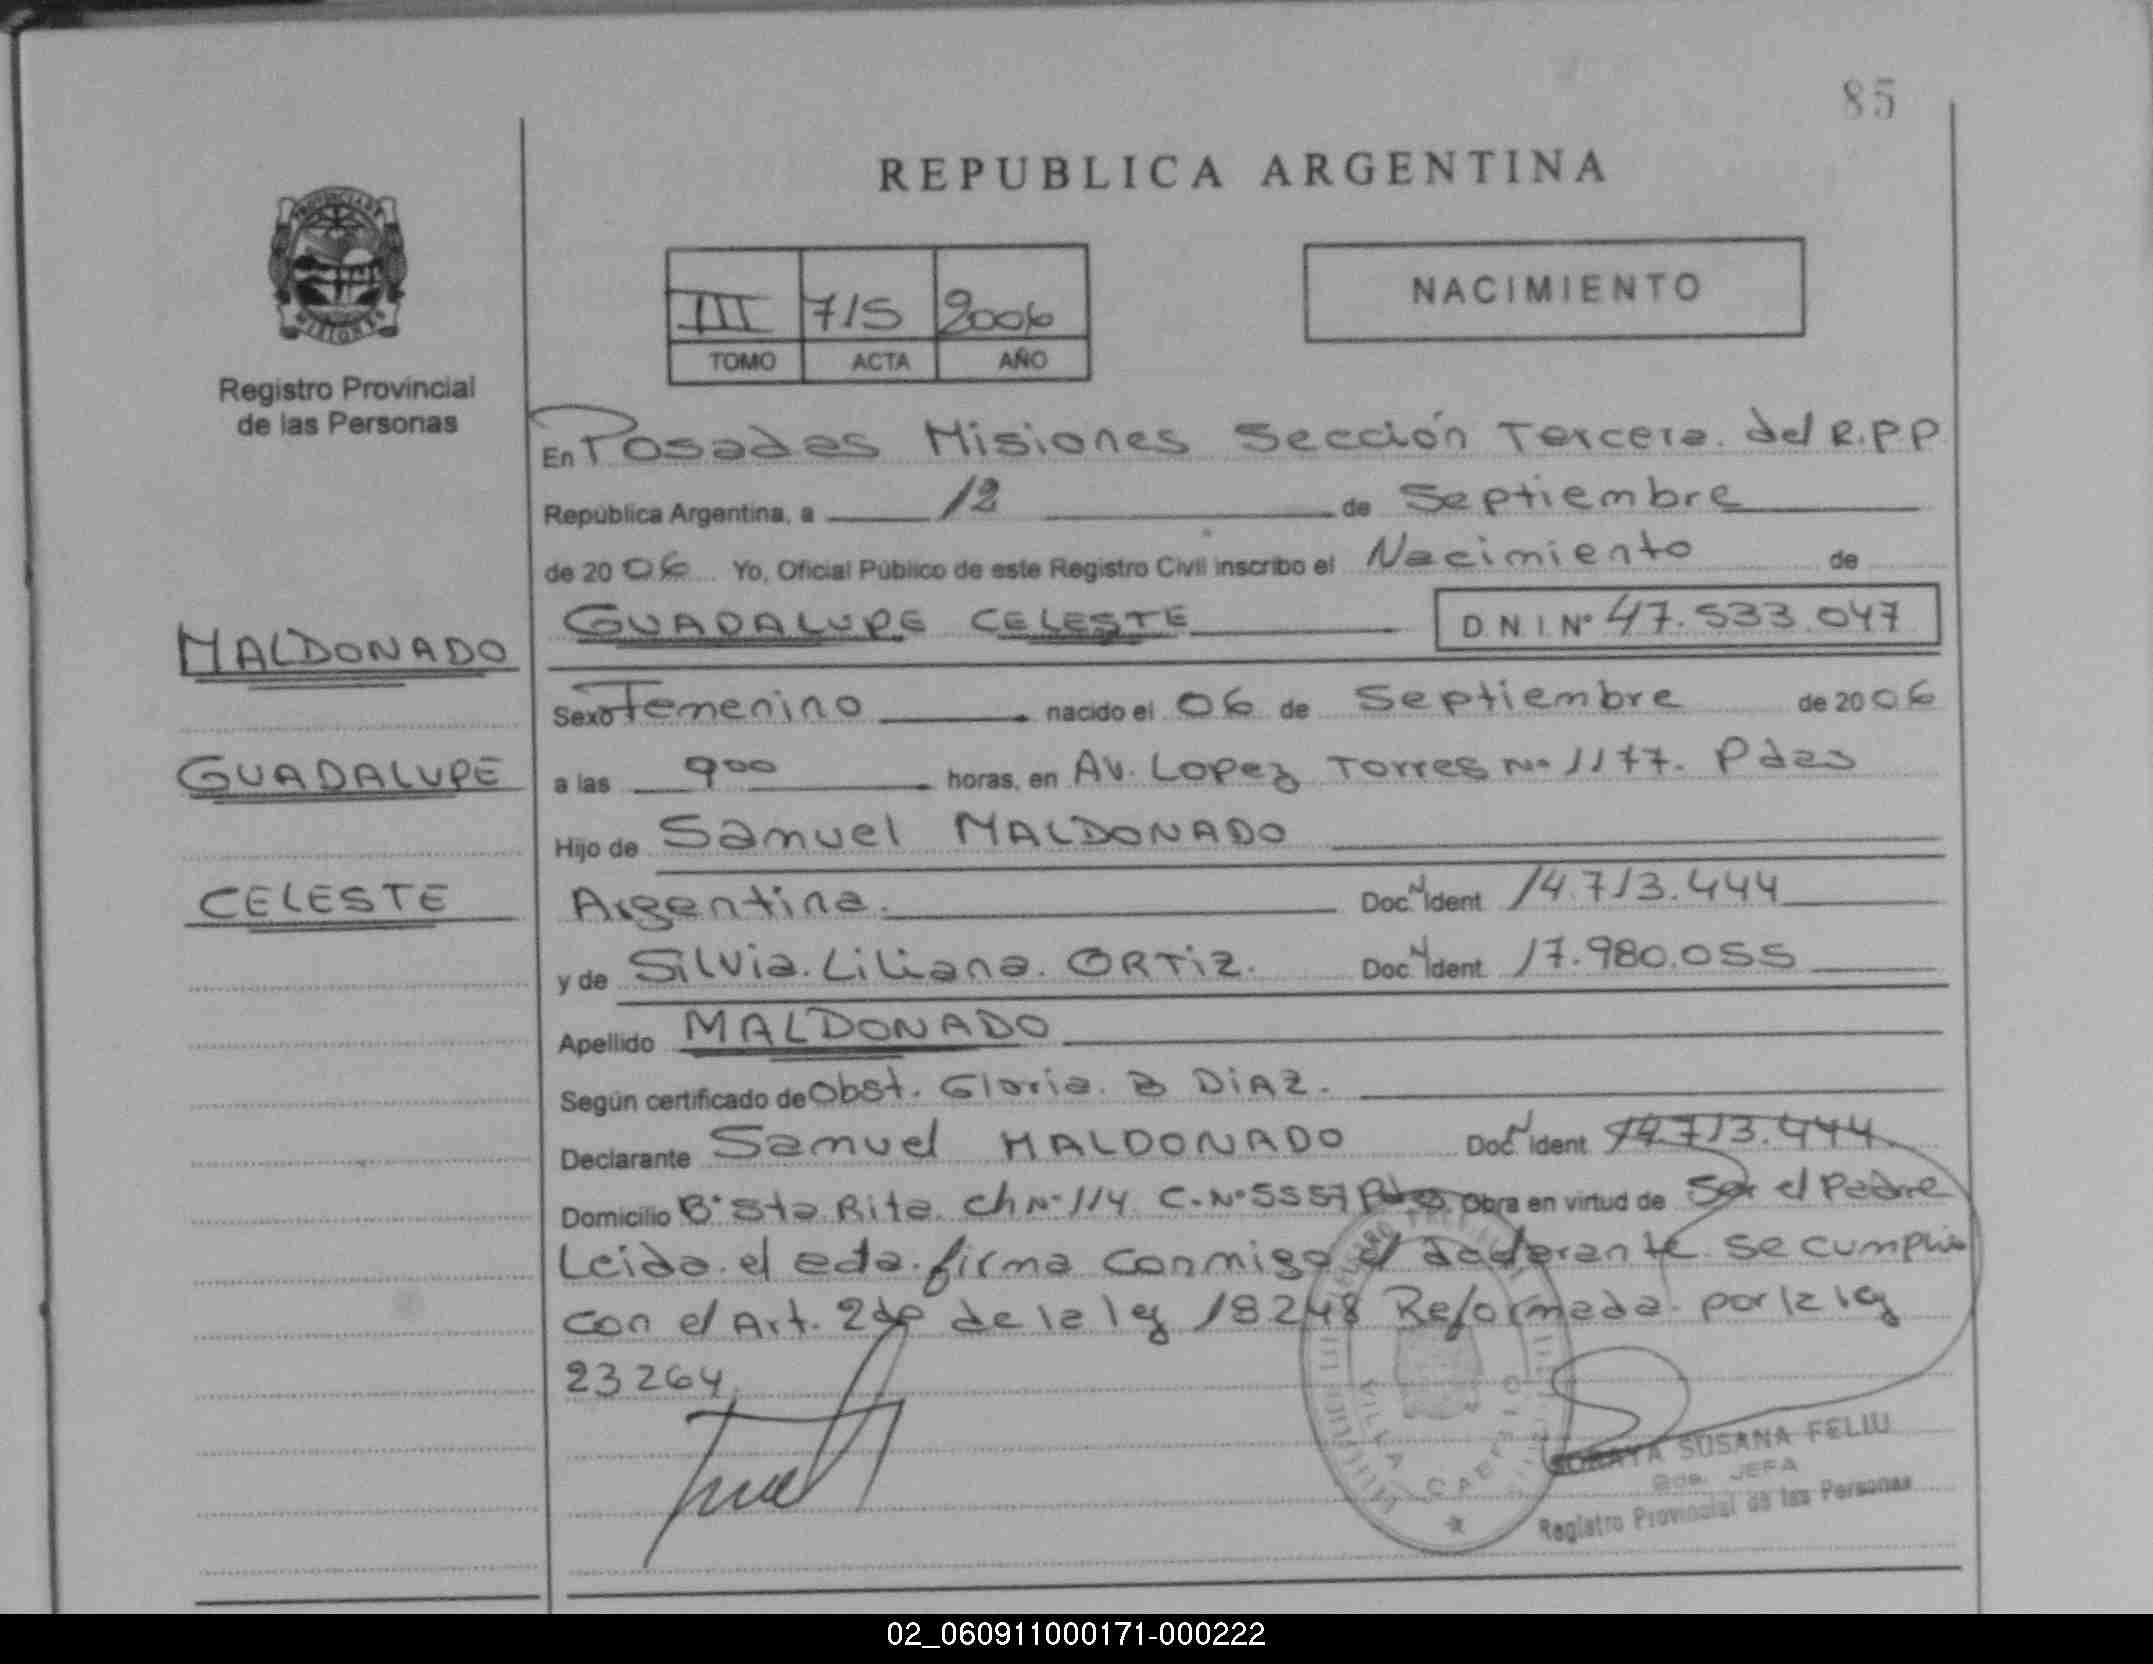 85
REPUBLICA ARGENTINA
NACIMIENTO
III 715 2006
TOMO ACTA AÑO
Registro Provincial
de las Personas
En Posadas Misiones Sección Tercera del R.P.P
República Argentina, a 12 de Septiembre
de 2006 Yo, Oficial Público de este Registro Civil inscribo el Nacimiento de
GUADALUPE CELESTE D.N.I. Nº 47.533.047
MALDONADO
Sexo Femenino nacido el 06 de Septiembre de 2006
GUADALUPE
a las 9 00 horas, en Av. Lopez Torres Nº 1177. Pdas
Hijo de Samuel MALDONADO
CELESTE
Argentina. Doc. N Ident 14.713.444
y de Silvia Liliana ORTIZ. Doc N Ident 17.980.055
Apellido MALDONADO
Según certificado de Obst. Gloria B DIAZ.
Declarante Samuel MALDONADO Doc. N Ident 14.713.444
Domicilio Bº Sta Rita Ch Nº 114 C. Nº 5557 Pdas Obra en virtud de Ser el Padre
Leida el acta firma conmigo el declarante se cumplio
con el Art. 2do de la ley 18248 Reformada por la ley
23264
SORAYA SUSANA FELIU
JEFA
Registro Provincial de las Personas
02_060911000171-000222